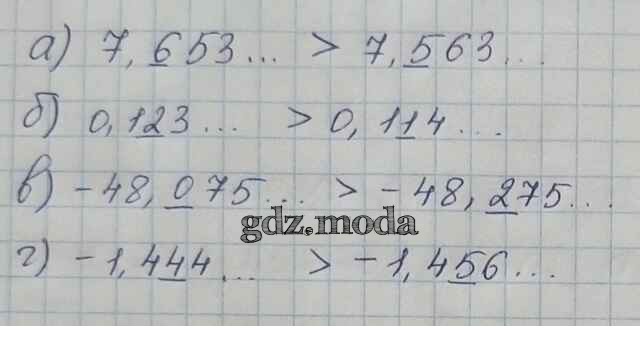 а) 7,653... > 7,563...
б) 0,123... > 0,114...
в) -48,075... > -48,275...
gdz.moda
г) -1,444... > -1,456...